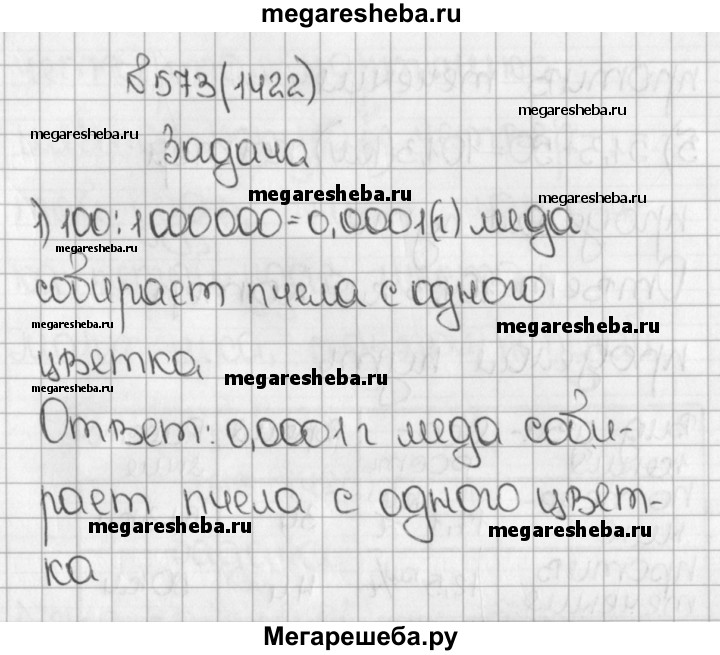 megaresheba.ru
№573(1422)
megaresheba.ru
megaresheba.ru
Задача
megaresheba.ru
megaresheba.ru
1) 100:1000000=0,0001(г) меда
megaresheba.ru
собирает пчела с одного
megaresheba.ru
megaresheba.ru
цветка
megaresheba.ru
megaresheba.ru
Ответ: 0,0001 г меда соби-
рает пчела с одного цвет-
megaresheba.ru
megaresheba.ru
ка
Мегарешеба.ру